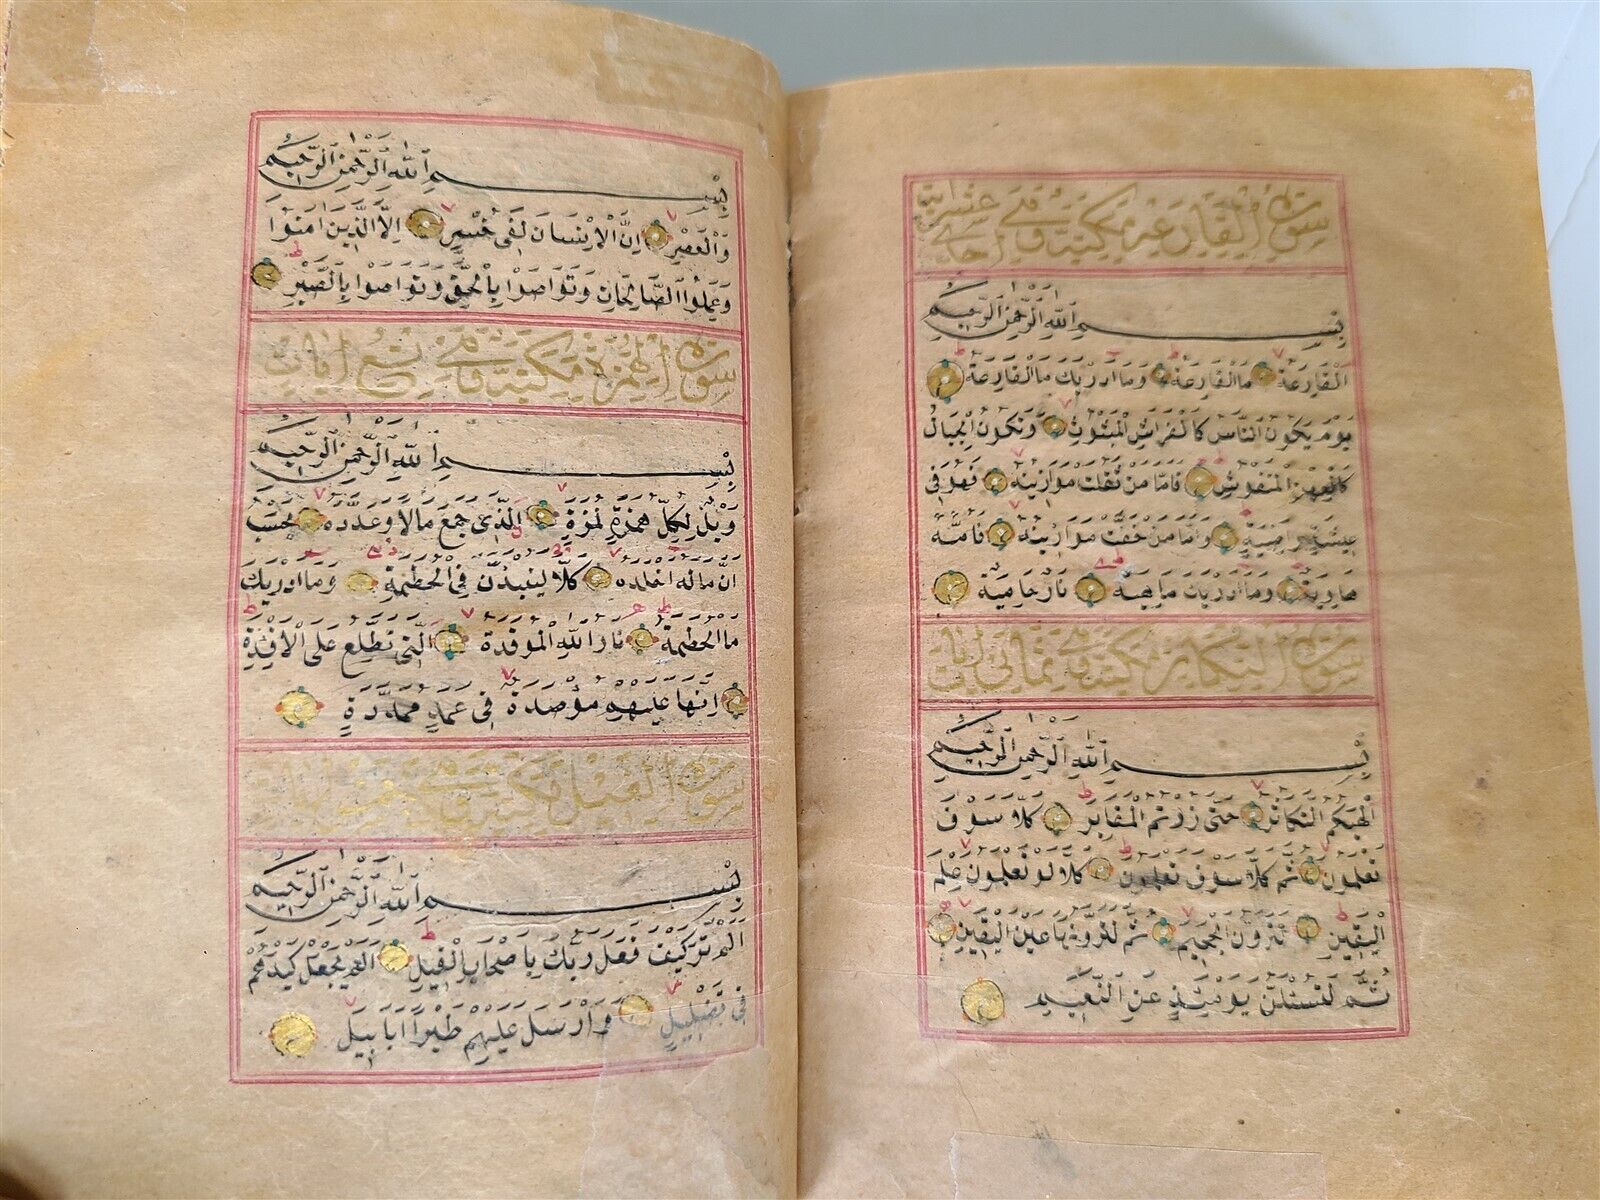 سورة القارعة مكية وهي احدى عشر اية
بِسْمِ اللهِ الرَّحْمٰنِ الرَّحِيمِ
اَلْقَارِعَةُ مَا الْقَارِعَةُ وَمَا اَدْرٰيكَ مَا الْقَارِعَةُ
يَوْمَ يَكُونُ النَّاسُ كَالْفَرَاشِ الْمَبْثُوثِ وَتَكُونُ الْجِبَالُ
كَالْعِهْنِ الْمَنْفُوشِ فَاَمَّا مَنْ ثَقُلَتْ مَوَازِينُهُ فَهُوَ فِى
عِيشَةٍ رَاضِيَةٍ وَاَمَّا مَنْ خَفَّتْ مَوَازِينُهُ فَاُمُّهُ
هَاوِيَةٌ وَمَا اَدْرٰيكَ مَاهِيَهْ نَارٌ حَامِيَةٌ
سورة التكاثر مكية وهي ثماني ايات
بِسْمِ اللهِ الرَّحْمٰنِ الرَّحِيمِ
اَلْهٰيكُمُ التَّكَاثُرُ حَتّٰى زُرْتُمُ الْمَقَابِرَ كَلَّا سَوْفَ
تَعْلَمُونَ ثُمَّ كَلَّا سَوْفَ تَعْلَمُونَ كَلَّا لَوْ تَعْلَمُونَ عِلْمَ
الْيَقِينِ لَتَرَوُنَّ الْجَحِيمَ ثُمَّ لَتَرَوُنَّهَا عَيْنَ الْيَقِينِ
ثُمَّ لَتُسْئَلُنَّ يَوْمَئِذٍ عَنِ النَّعِيمِ
بِسْمِ اللهِ الرَّحْمٰنِ الرَّحِيمِ
وَالْعَصْرِ اِنَّ الْاِنْسَانَ لَفِى خُسْرٍ اِلَّا الَّذِينَ اٰمَنُوا
وَعَمِلُوا الصَّالِحَاتِ وَتَوَاصَوْا بِالْحَقِّ وَتَوَاصَوْا بِالصَّبْرِ
سورة الهمزة مكية وهي تسع ايات
بِسْمِ اللهِ الرَّحْمٰنِ الرَّحِيمِ
وَيْلٌ لِكُلِّ هُمَزَةٍ لُمَزَةٍ اَلَّذِى جَمَعَ مَالًا وَعَدَّدَهُ يَحْسَبُ
اَنَّ مَالَهُ اَخْلَدَهُ كَلَّا لَيُنْبَذَنَّ فِى الْحُطَمَةِ وَمَا اَدْرٰيكَ
مَا الْحُطَمَةُ نَارُ اللهِ الْمُوقَدَةُ اَلَّتِى تَطَّلِعُ عَلَى الْاَفْئِدَةِ
اِنَّهَا عَلَيْهِمْ مُؤْصَدَةٌ فِى عَمَدٍ مُمَدَّدَةٍ
سورة الفيل مكية وهي خمس ايات
بِسْمِ اللهِ الرَّحْمٰنِ الرَّحِيمِ
اَلَمْ تَرَ كَيْفَ فَعَلَ رَبُّكَ بِاَصْحَابِ الْفِيلِ اَلَمْ يَجْعَلْ كَيْدَهُمْ
فِى تَضْلِيلٍ وَاَرْسَلَ عَلَيْهِمْ طَيْرًا اَبَابِيلَ